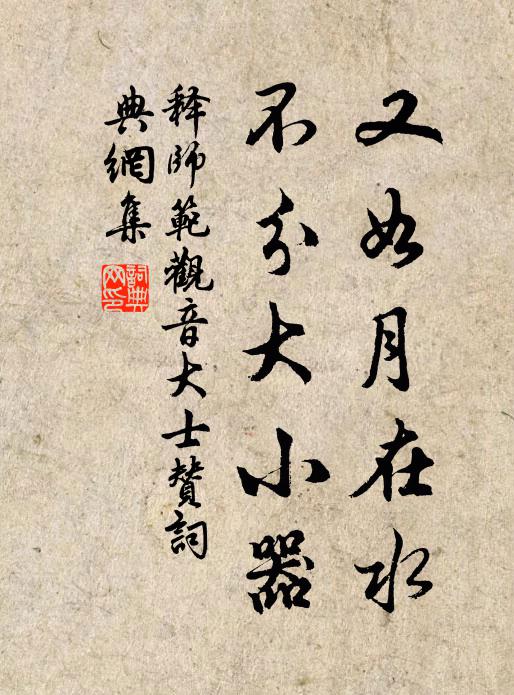 又如月在水
不分大小器
释師範觀音大士贊詞
典網集
詞典網印